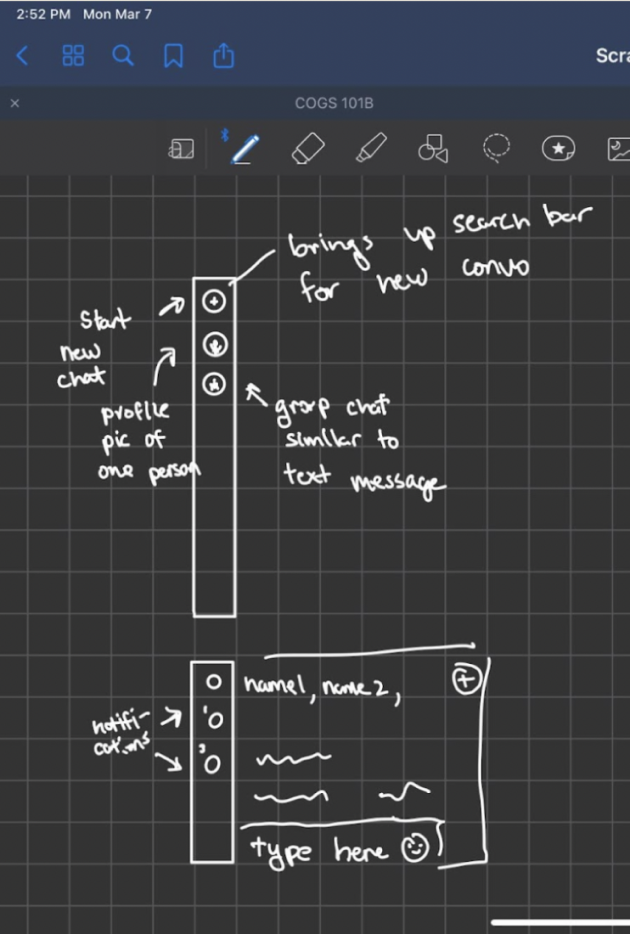 2:52 PM Mon Mar 7
Scra
COGS 101B
brings up search bar
for new convo
Start
new
chat
profile
pic of
one person
group chat
similar to
text message
name1, name 2,
notifi-
cations
1
3
type here